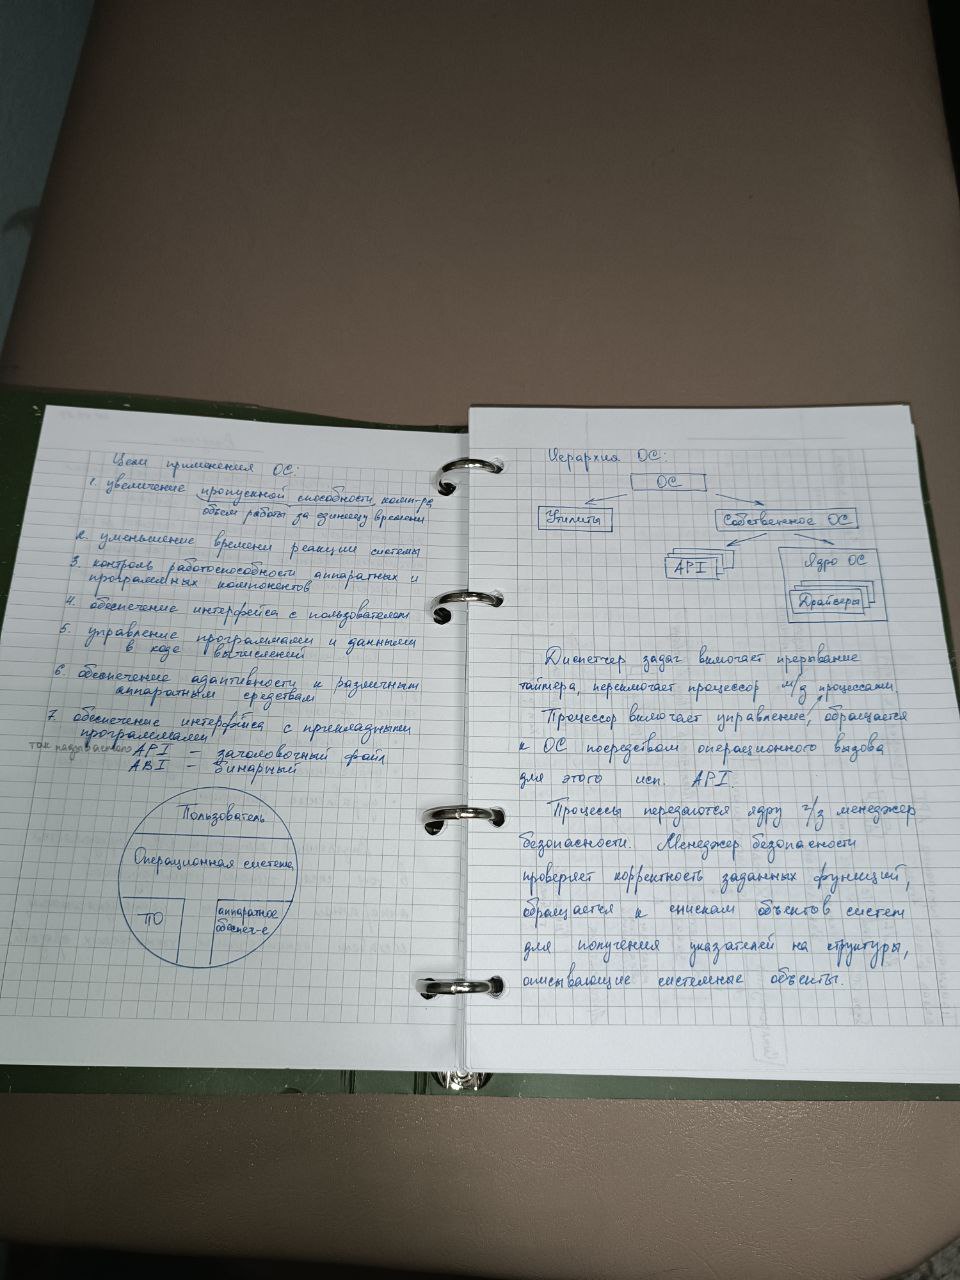 Цели применения ОС:
1. увеличение пропускной способности комп-ра
объем работы за единицу времени
2. уменьшение времени реакции системы
3. контроль работоспособности аппаратных и
программных компонентов
4. обеспечение интерфейса с пользователем
5. управление программами и данными
в ходе вычислений
6. обеспечение адаптивности к различным
аппаратным средствам
7. обеспечение интерфейса с прикладными
программами
API – заголовочный файл
ABI – бинарный
Пользователь
Операционная система
ПО
аппаратное
обеспеч-е
Иерархия ОС:
ОС
Утилиты
Собственное ОС
API
Ядро ОС
Драйверы
Диспетчер задач включает прерывание
таймера, переключает процессор м/д процессами.
Процессор включает управление, обращается
к ОС посредством операционного вызова
для этого исп. API.
Процессы передаются ядру ч/з менеджер
безопасности. Менеджер безопасности
проверяет корректность заданных функций,
обращается к спискам объектов систем
для получения указателей на структуры,
описывающие системные объекты.